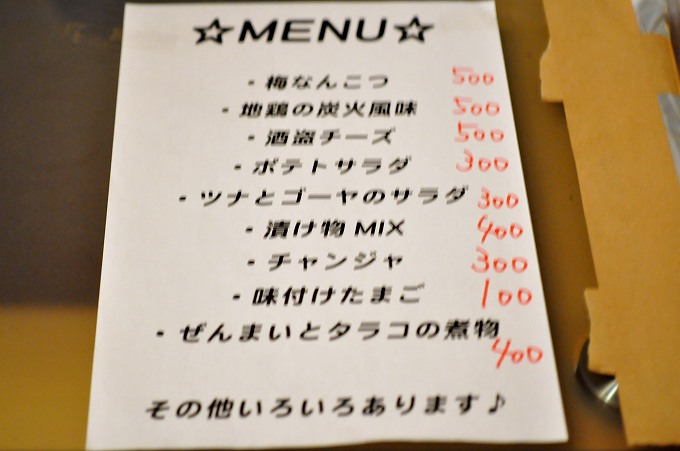 ☆MENU☆
・梅なんこつ 500
・地鶏の炭火風味 500
・酒盗チーズ 500
・ポテトサラダ 300
・ツナとゴーヤのサラダ 300
・漬け物MIX 400
・チャンジャ 300
・味付けたまご 100
・ぜんまいとタラコの煮物
400
その他いろいろあります♪